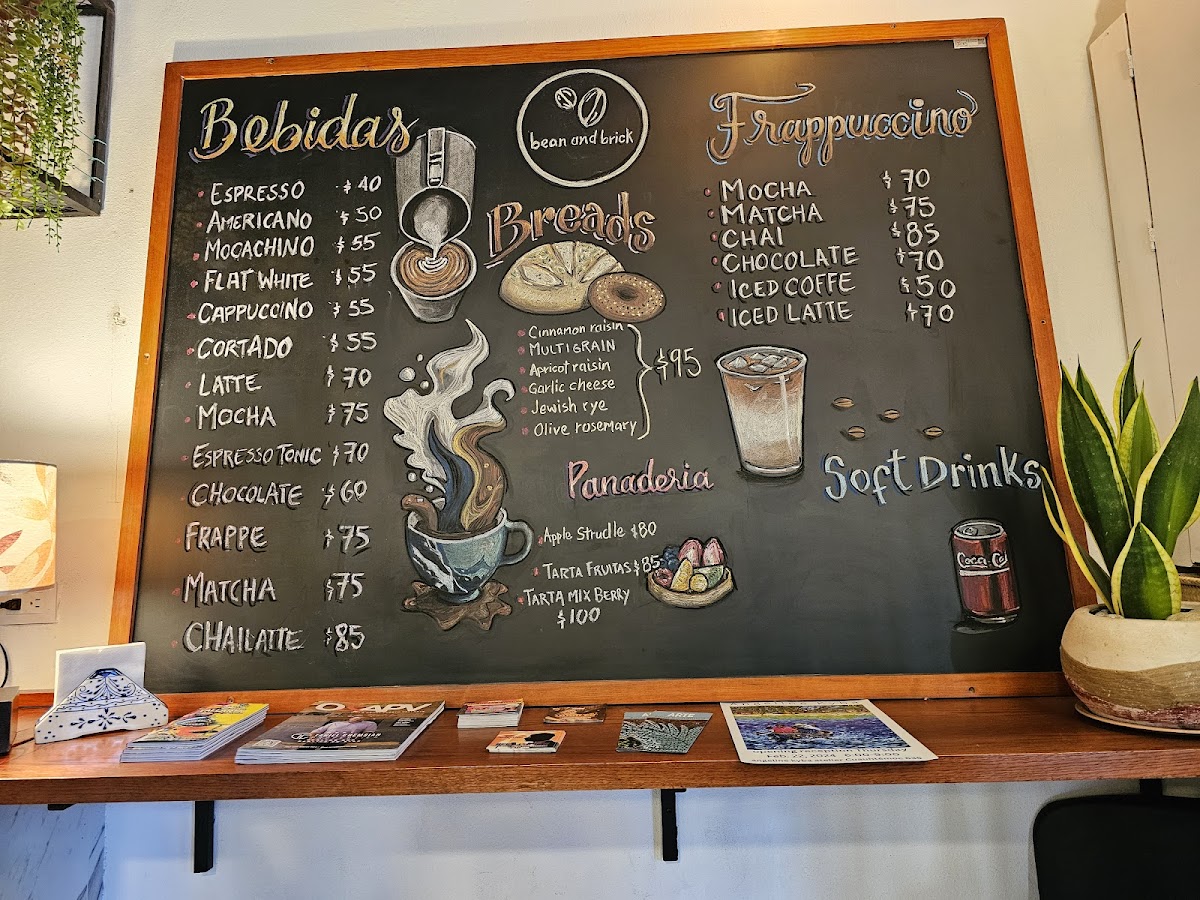 bean and brick
Bebidas
ESPRESSO $40
AMERICANO $50
MOCACHINO $55
FLAT WHITE $55
CAPPUCCINO $55
CORTADO $55
LATTE $70
MOCHA $75
ESPRESSO TONIC $70
CHOCOLATE $60
FRAPPE $75
MATCHA $75
CHAI LATTE $85
Breads
Cinnamon raisin
MULTIGRAIN
Apricot raisin
Garlic cheese
Jewish rye
Olive rosemary
$95
Panaderia
Apple Strudle $80
TARTA FRUITAS $85
TARTA MIX BERRY
$100
Frappuccino
MOCHA $70
MATCHA $75
CHAI $85
CHOCOLATE $70
ICED COFFE $50
ICED LATTE $70
Soft Drinks
Coca-Co
ARTE